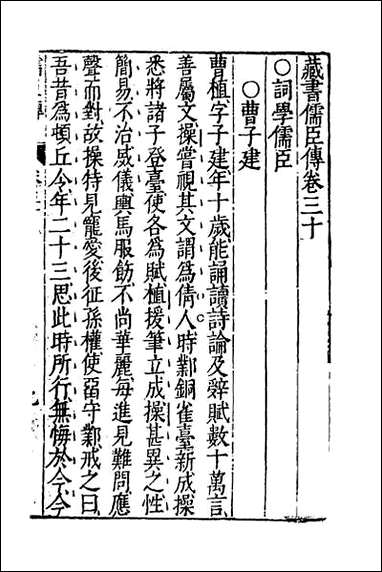 藏書儒臣傳卷三十
○詞學儒臣
○曹子建
曹植字子建年十歲能誦讀詩論及辭賦數十萬言
善屬文操嘗視其文謂爲倩人時鄴銅雀臺新成操
悉將諸子登臺使各爲賦植援筆立成操甚異之性
簡易不治威儀輿馬服飭不尚華麗每進見難問應
聲而對故操特見寵愛後征孫權使畱守鄴戒之曰
吾昔爲頓丘令年二十三思此時所行無悔於今今